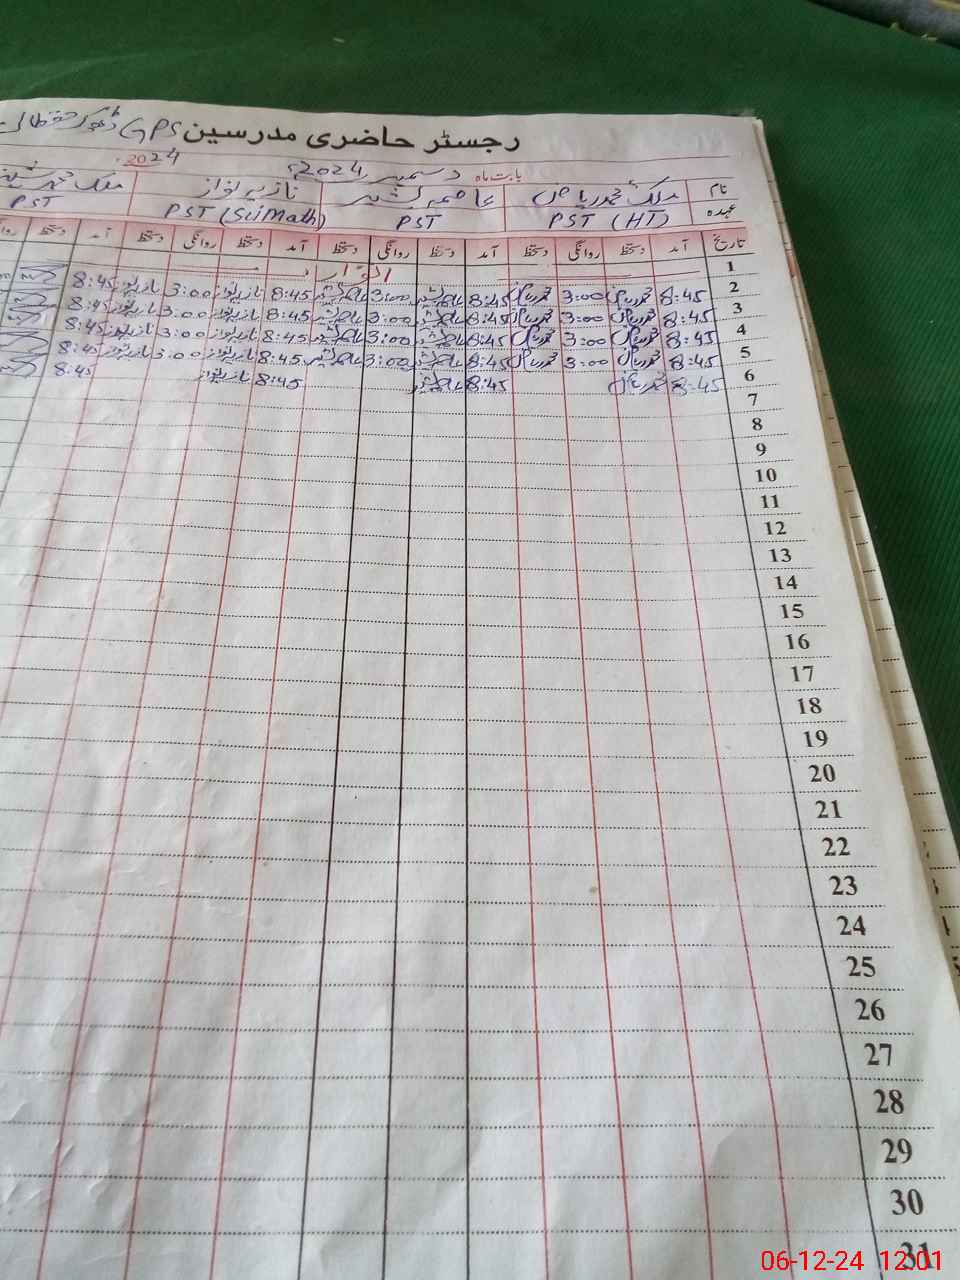 رجسٹر حاضری مدرسین GPS ڈھوک
بابت ماہ دسمبر 2024ء 2024
نام ملک محمد ریاض عاصمہ بشیر نازیہ نواز ملک محمد
عہدہ PST (HT) PST PST (Sci Math) PST
تاریخ آمد دستخط روانگی دستخط آمد دستخط روانگی دستخط آمد دستخط روانگی دستخط آمد دستخط
1 اتوار
2 8:45 محمد ریاض 3:00 محمد ریاض 8:45 عاصمہ بشیر 3:00 عاصمہ بشیر 8:45 نازیہ نواز 3:00 نازیہ نواز 8:45
3 8:45 محمد ریاض 3:00 محمد ریاض 8:45 عاصمہ بشیر 3:00 عاصمہ بشیر 8:45 نازیہ نواز 3:00 نازیہ نواز 8:45
4 8:45 محمد ریاض 3:00 محمد ریاض 8:45 عاصمہ بشیر 3:00 عاصمہ بشیر 8:45 نازیہ نواز 3:00 نازیہ نواز 8:45
5 8:45 محمد ریاض 3:00 محمد ریاض 8:45 عاصمہ بشیر 3:00 عاصمہ بشیر 8:45 نازیہ نواز 3:00 نازیہ نواز 8:45
6 8:45 محمد ریاض 8:45 عاصمہ بشیر 8:45 نازیہ نواز 8:45
7
8
9
10
11
12
13
14
15
16
17
18
19
20
21
22
23
24
25
26
27
28
29
30
31
06-12-24 12:01